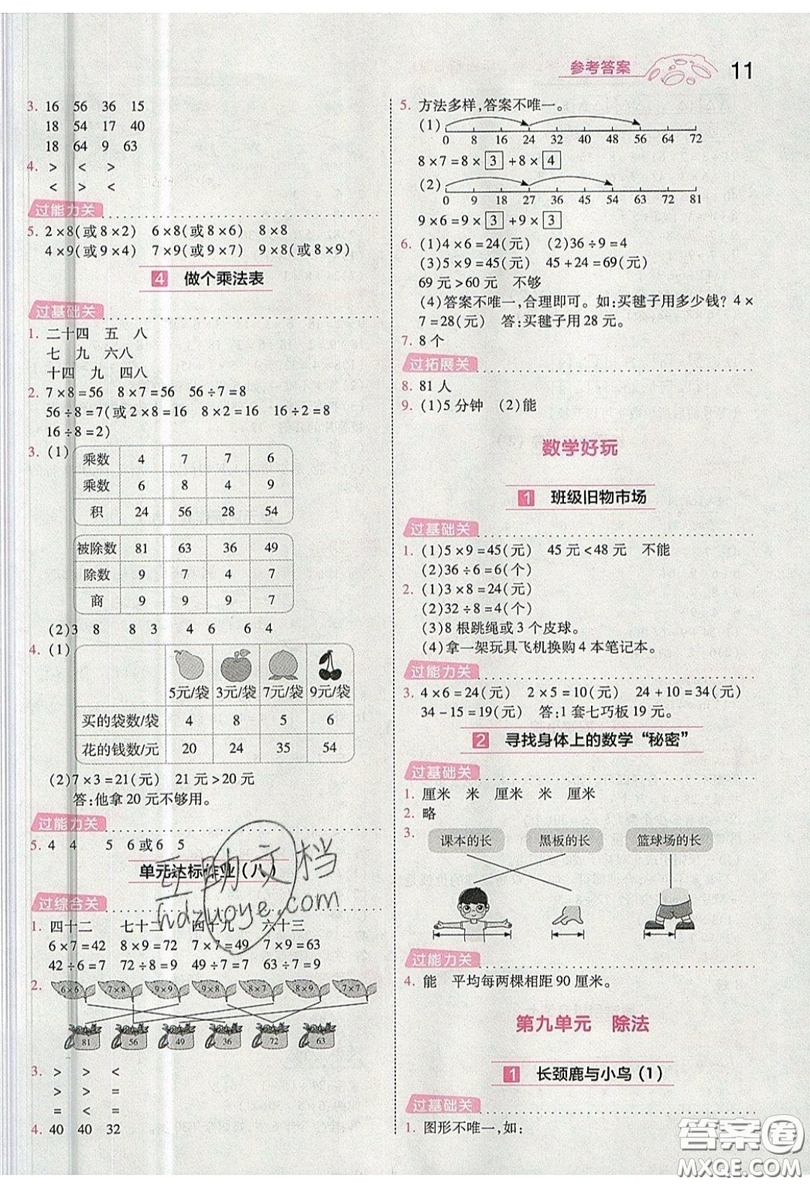 参考答案 11
3. 16 56 36 15
18 54 17 40
18 64 9 63
4. > < >
< > <
过能力关
5. 2×8(或8×2) 6×8(或8×6) 8×8
4×9(或9×4) 7×9(或9×7) 9×8(或8×9)
4 做个乘法表
过基础关
1. 二十四 五 八
七 九 六八
十四 九 四八
2. 7×8=56 8×7=56 56÷7=8
56÷8=7(或2×8=16 8×2=16 16÷2=8
16÷8=2)
3. (1)
乘数 4 7 7 6
乘数 6 8 4 9
积 24 56 28 54
被除数 81 63 36 49
除数 9 7 4 7
商 9 9 9 7
(2)3 8 8 3 4 6 6 4
4. (1)
5元/袋 3元/袋 7元/袋 9元/袋
买的袋数/袋 4 8 5 6
花的钱数/元 20 24 35 54
(2)7×3=21(元) 21元>20元
答:他拿20元不够用。
过能力关
5. 4 4 5 6或6 5
单元达标作业(八)
过综合关
1. 四十二 七十二 四十九 六十三
6×7=42 8×9=72 7×7=49 7×9=63
42÷6=7 72÷8=9 49÷7=7 63÷7=9
2.
81 56 49 36 72 63
3. > > <
> > =
= < <
4. 40 40 32
5. 方法多样,答案不唯一。
(1)
0 8 16 24 32 40 48 56 64 72
8×7=8×3+8×4
(2)
0 9 18 27 36 45 54 63 72 81
9×6=9×3+9×3
6. (1)4×6=24(元) (2)36÷9=4
(3)5×9=45(元) 45+24=69(元)
69元>60元 不够
(4)答案不唯一,合理即可。如:买毽子用多少钱? 4×
7=28(元) 答:买毽子用28元。
7. 8个
过拓展关
8. 81人
9. (1)5分钟 (2)能
数学好玩
1 班级旧物市场
过基础关
1. (1)5×9=45(元) 45元<48元 不能
(2)36÷6=6(个)
2. (1)3×8=24(元)
(2)32÷8=4(元)
(3)8根跳绳或3个皮球。
(4)拿一架玩具飞机换购4本笔记本。
过能力关
3. 4×6=24(元) 2×5=10(元) 24+10=34(元)
34-15=19(元) 答:1套七巧板19元。
2 寻找身体上的数学“秘密”
过基础关
1. 厘米 米 厘米 米 厘米
2. 略
3. 课本的长 黑板的长 篮球场的长
过能力关
4. 能 平均每两棵相距90厘米。
第九单元 除法
1 长颈鹿与小鸟(1)
过基础关
1. 图形不唯一,如:
互助文档
hdzuoye.com
答案圈
MXQE.COM